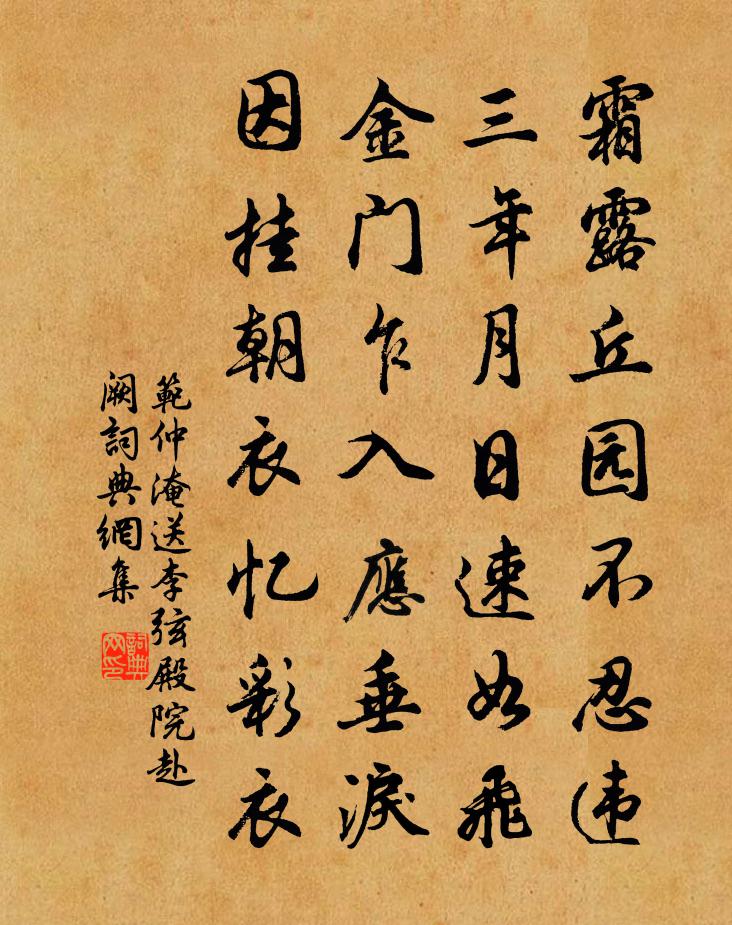 霜露丘园不忍违
三年月日速如飞
金门乍入應垂淚
因挂朝衣忆彩衣
範仲淹送李弦殿院赴
阙詞典網集
詞典网印